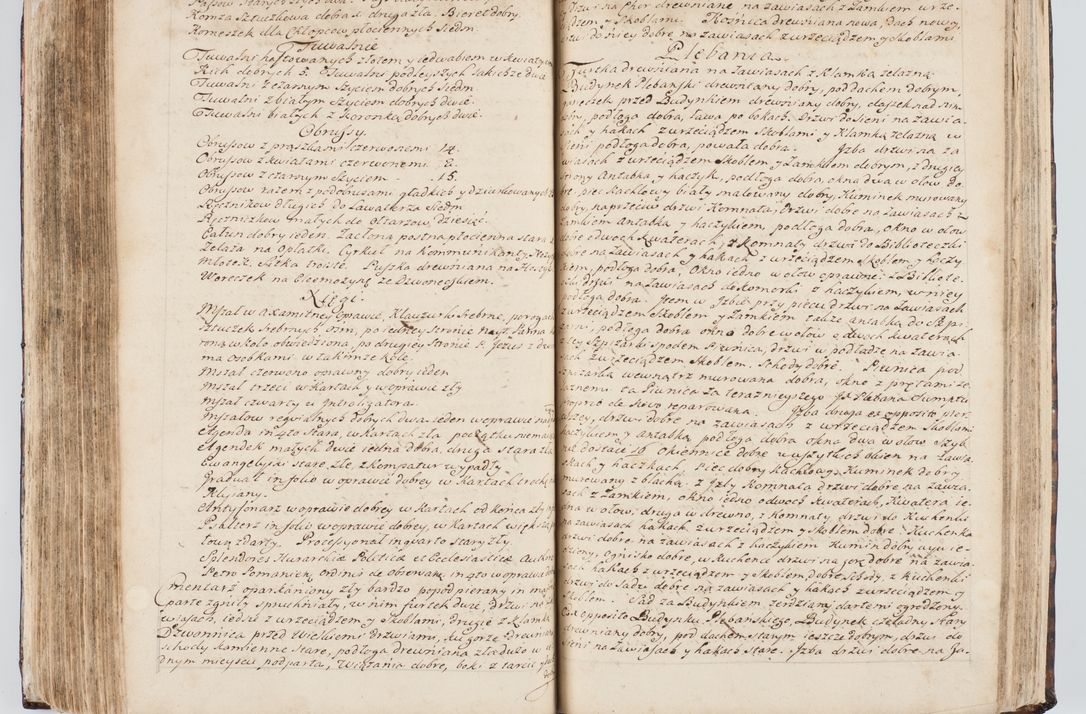 Komża Sztuczkowa dobra 1. druga zła. Biret dobry.
Komeszek dla Chłopcow płociennych Siedm
Tuwalnie
Tuwalni haftowanych złotem y iedwabiem w kwiaty
kich dobrych 3. Tuwalni podleyszych także dwa
Tuwalni z czarnym szyciem dobrych Siedm
Tuwalni z białym szyciem dobrych dwie
Tuwalni białych z koronką dobrych dwie.
Obrusy.
Obrusow z prązkami czerwonemi 14.
Obrusow z kwiatami czerwonemi 2.
Obrusow z czarnym szyciem - 15.
Obrusow razem z podobrusami gładkich y dziurkowanych
Ręcznikow długich do Lawaterza Siedm
Ręcznikow małych do Ołtarzow Dziesięć
Całun dobry ieden. Zasłona postna płocienna stara
Żelaza na Opłatki, Cyrkuł na Kommunikanty,
Młotek. Siłka troistę. Puszka drewniana na Hostye
Woreczek na Elemozynę ze Dzwoneczkiem.
Xięgi.
Mszał w axamitney oprawie, Klauzurki srebrne, po rogach
Sztuczek srebrnych osm, po iedney stronie Nayś: Panna
roną w koło obwiedziona, po drugiey stronie P. Jezus z dwie
ma osobkami w takimże kole.
Mszał czerwono oprawny dobry ieden
Mszał trzeci w kartach y w oprawie zły
Mszał czwarty u Introligatora.
Mszałow requialnych dobrych dwa. ieden w oprawie
Agenda in 4to stara, w kartach zła początku niema
Agendek małych dwie iedna dobra, druga stara zła
Ewangelyiki stare, złe, z kompatur wypadły
Graduał in folio w oprawie dobrey w kartach trochę
Klejany.
Antyfonarz w oprawie dobrey w kartach od końca zły
Psałterz in folio w oprawie dobrey, w kartach większą
tową zdarty. Processyonał in quarto stary zły
Splendores Hierarchiae Politicae et Ecclesiasticae Authore
Petro Pomanienę ordinis de observan: in 4to w oprawie
Cmentarz oparkaniony zły bardzo popodpierany in maiori
parte zgniły spruchniały, w nim furtek dwie, drzwi na za
wiasach, iedne z wrzeciądzem y Skoblami, drugie z klamką
Dzwonnica przed wielkiemi drzwiami, do gorze drewniana
schody kamienne stare, podłoga drewniana zła dużo w ie
dnym mieyscu podparta, wiązania dobre, boki z tarcic
drzwi na Chor drewniane na zawiasach z Zamkiem wrze
dzem y Skoblami. Kośnica drewniana nowa, Dach nowy
drzwi do niey dobre na zawiasach z wrzeciądzem y Skoblami
Plebania.
Furtka drewniana na zawiasach z klamką żelazną.
Budynek Plebański drewniany dobry, pod dachem dobrym,
ganeczek przed Budynkiem drewniany dobry, daszek nad nim
dobry, podłoga dobra, ława po bokach. Drzwi do sieni na zawia
sach y hakach z wrzeciądzem Skoblami y klamką żelazną w
Sieni podłoga dobra, powała dobra. Izba drzwi na za
wiasach z wrzeciądzem Skoblem y Zamkiem dobrym, z drugiey
strony antabka, y haczyk, podłoga dobra, okna dwa w ołow do
bre, piec kachlowy biały malowany dobry, Kuminek murowany
dobry, naprzeciw drzwi Komnata, drzwi dobre na zawiasach z
Zamkiem antabką y haczykiem, podłoga dobra, okno w ołow
dobre o dwoch kwaterach, z Komnaty drzwi do Biblioteczki
dobre na zawiasach y hakach z wrzeciądzem Skoblem y haczy
kiem, podłoga dobra, Okno iedno w ołow oprawne. z Bibliote
czki drzwi na zawiasach do komorki z haczykiem, w niey
podłoga dobra. Item w Izbie przy piecu drzwi na zawiasach
z wrzeciądzem Skoblem y Zamkiem także antabką do Szpi
żarni, podłoga dobra okno dobre w ołow o dwoch kwaterach
z tey Szpiżarki spodem Piwnica, drzwi w podłodze na zawia
sach z wrzeciądzem Skoblem. Schody dobre. Piwnica pod
Szpiżarką wewnątrz murowana dobra, okno z prętami że
laznemi ta Piwnica za teraznieyszego Jx Plebana Sumatu
proprio do siebie reparowana. Izba druga ex opposito pier
wszey, drzwi dobre na zawiasach z wrzeciądzem Skoblami
haczykiem y antabką podłoga dobra okna dwa w ołow. Szyb
nie dostaie 10 Okiennice dobre u wszytkich okien na zawia
skach y haczkach. Piec dobry kachlowy Kuminek dobry
murowany z blachą. z Izby Komnata drzwi dobre na zawia
sach z Zamkiem, okno iedno o dwoch kwaterach, Kwatera ie
dna w ołow, druga w drewno, z Komnaty drzwi do Kuchenki
na zawiasach hakach z wrzeciądzem y Skoblem dobre. Kuchenka
drzwi dobre na zawiasach z haczykiem Kumin dobry wywie
dziony, Ognisko dobre, w Kuchence drzwi na gorę dobre na zawia
sach hakach z wrzeciądzem y Skoblem, dobre, Schody, z Kuchenki
drzwi do Sadu dobre na zawiasach y hakach z wrzeciądzem y
Skoblem. Sad za Budynkiem żerdziami dartemi ogrodzony.
Ex opposito Budynku Plebańskiego, Budynek czeladny Stary
drewniany dobry, pod dachem starym ieszcze dobrym, drzwi do
sieni na zawiasach y hakach stare. Izba drzwi dobre na za-